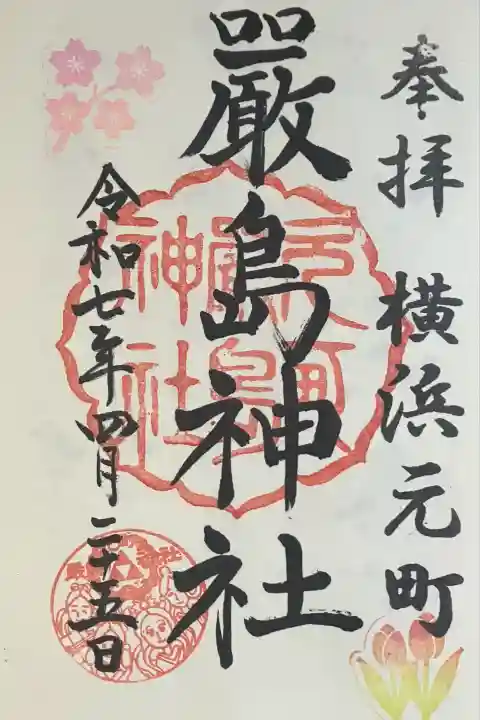 奉拝 横浜元町
嚴島神社
元町
嚴島
神社
令和七年四月二十五日